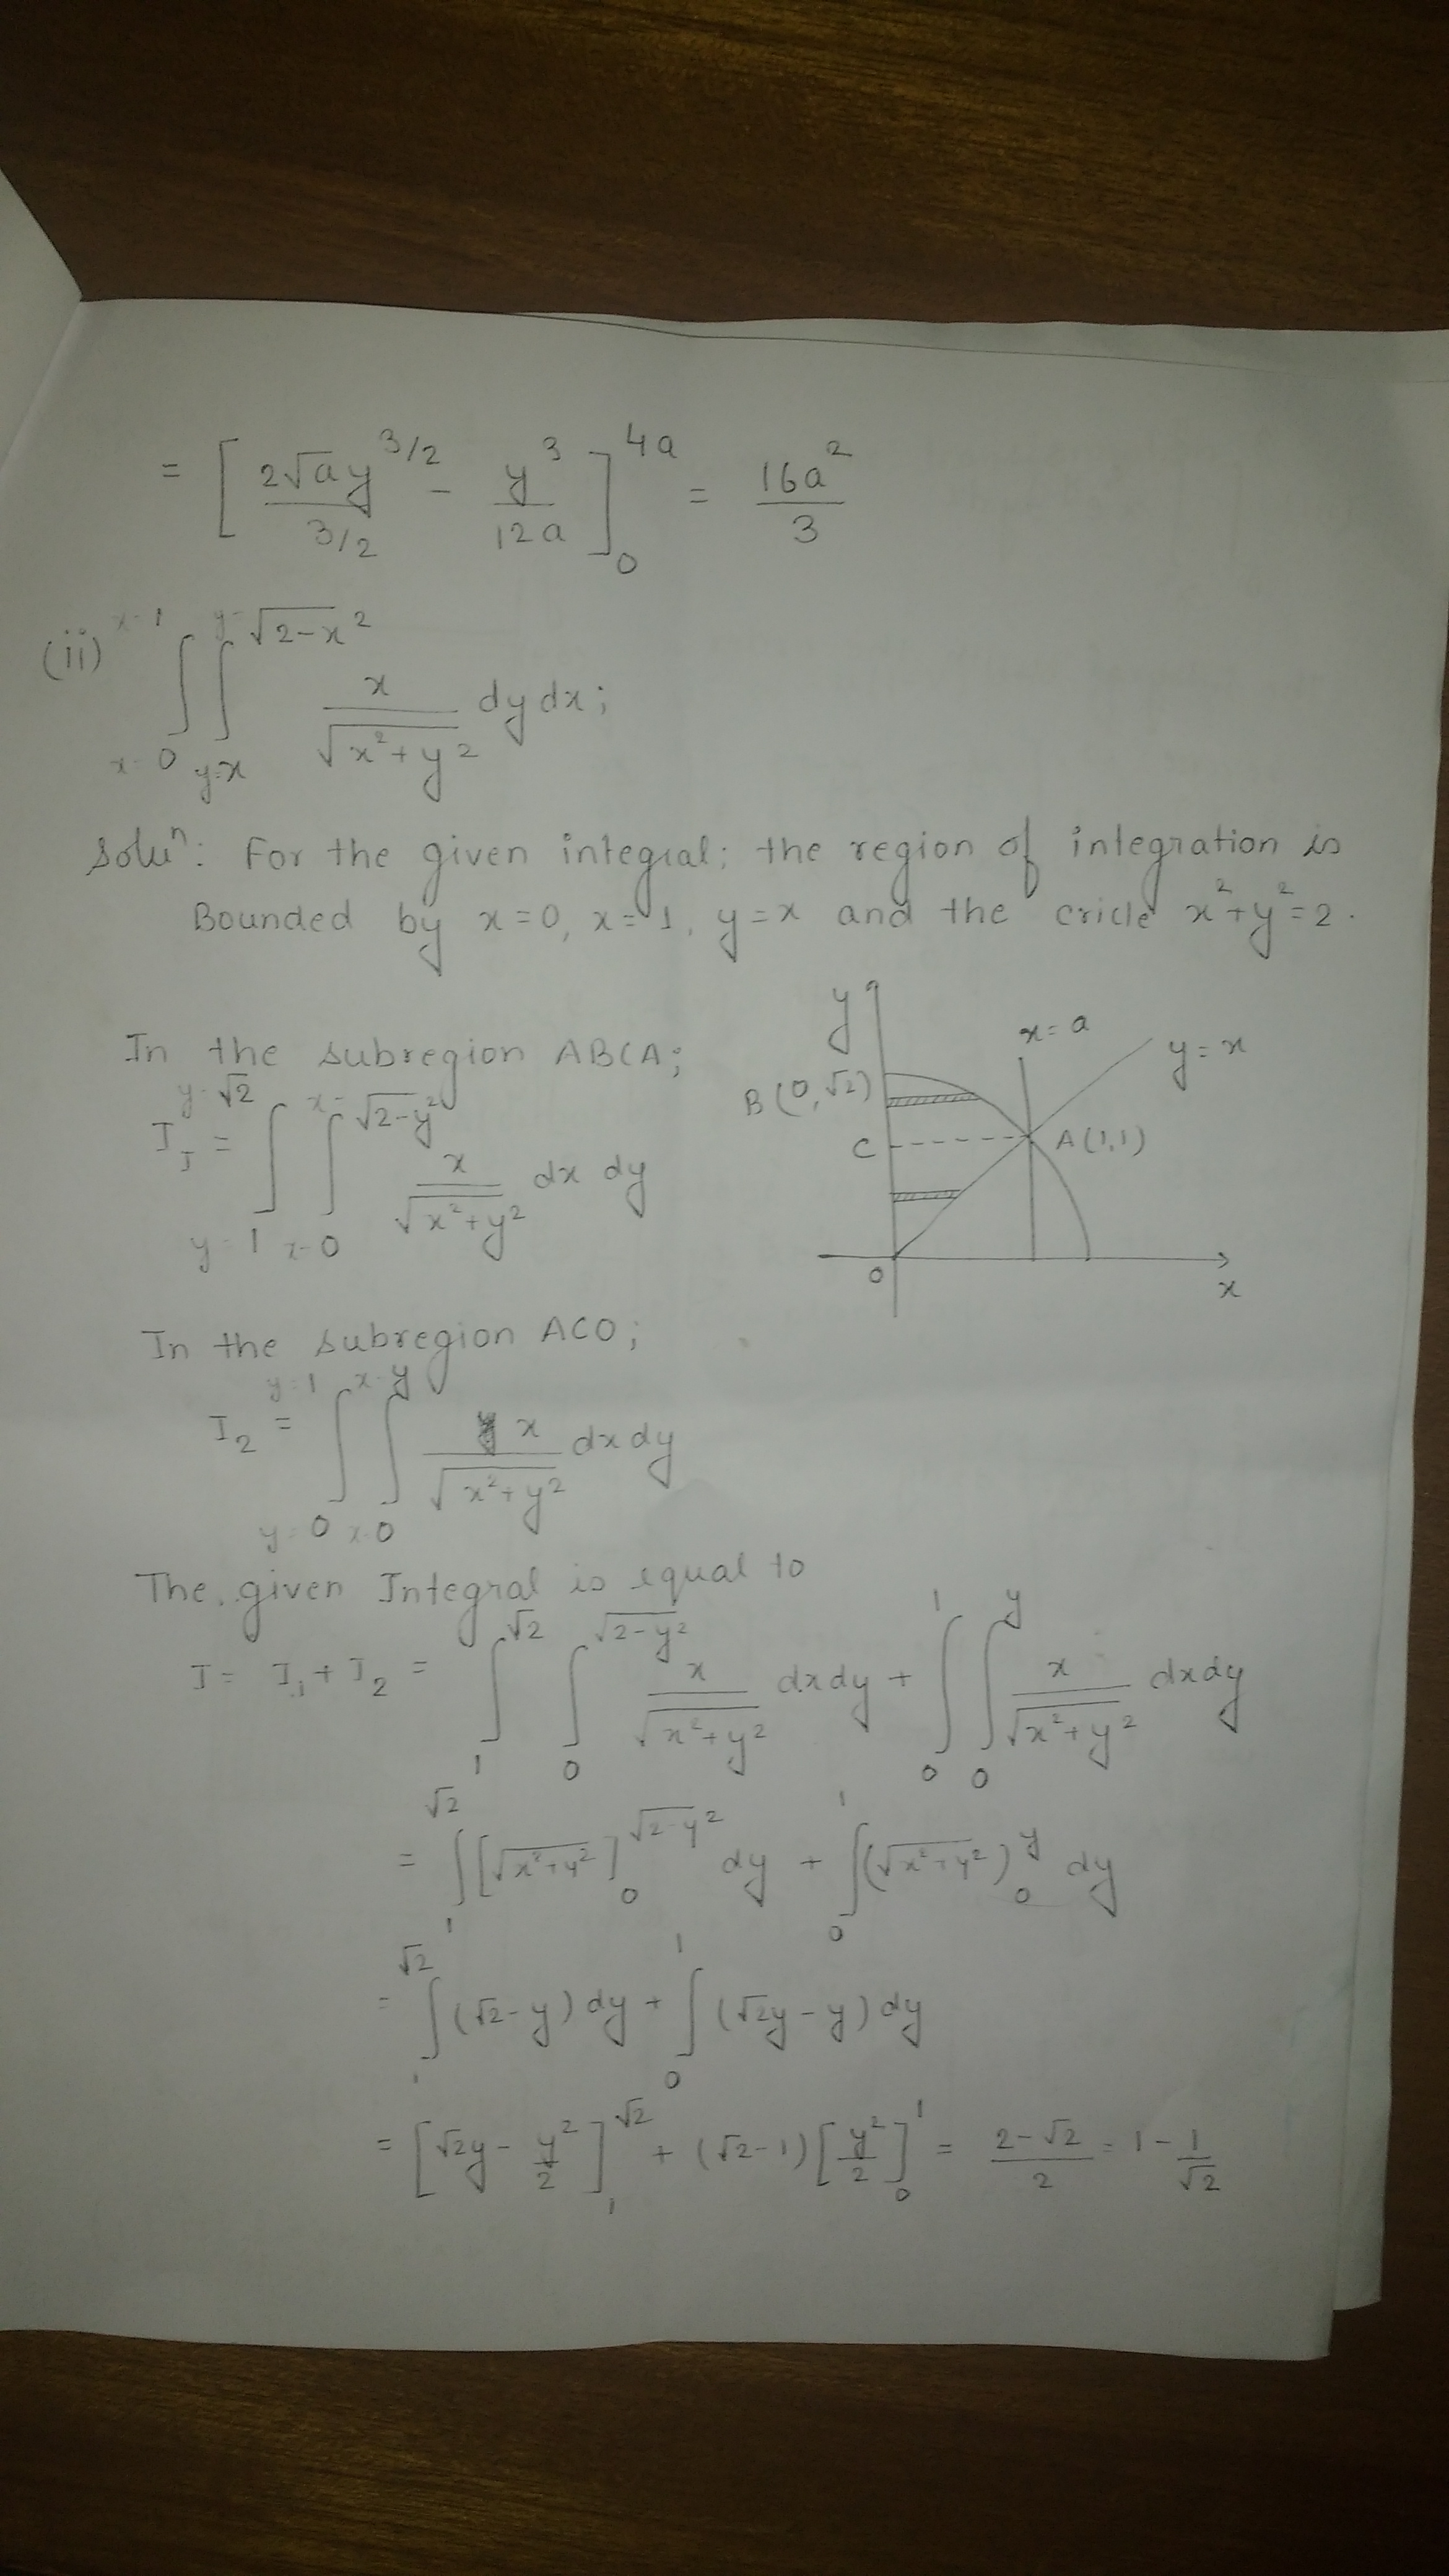 = [ 2√a y^(3/2) / (3/2) - y^3 / 12a ]_0^4a = 16a^2 / 3
(ii) ∫_{x=0}^{x=1} ∫_{y=x}^{y=√2-x^2} x / √(x^2+y^2) dy dx;
Solu^n: For the given integral; the region of integration is
Bounded by x=0, x=1, y=x and the cricle x^2+y^2=2.
y
x=a
y=x
B(0,√2)
C
A(1,1)
O
x
In the subregion ABCA;
I_1 = ∫_{y=1}^{y=√2} ∫_{x=0}^{x=√2-y^2} x / √(x^2+y^2) dx dy
In the subregion ACO;
I_2 = ∫_{y=0}^{y=1} ∫_{x=0}^{x=y} x / √(x^2+y^2) dx dy
The given Integral is equal to
I = I_1 + I_2 = ∫_1^√2 ∫_0^√(2-y^2) x / √(x^2+y^2) dx dy + ∫_0^1 ∫_0^y x / √(x^2+y^2) dx dy
= ∫_1^√2 [√(x^2+y^2)]_0^√(2-y^2) dy + ∫_0^1 (√(x^2+y^2))_0^y dy
= ∫_1^√2 (√2-y) dy + ∫_0^1 (√2y-y) dy
= [√2y - y^2/2]_1^√2 + (√2-1) [y^2/2]_0^1 = (2-√2)/2 = 1 - 1/√2